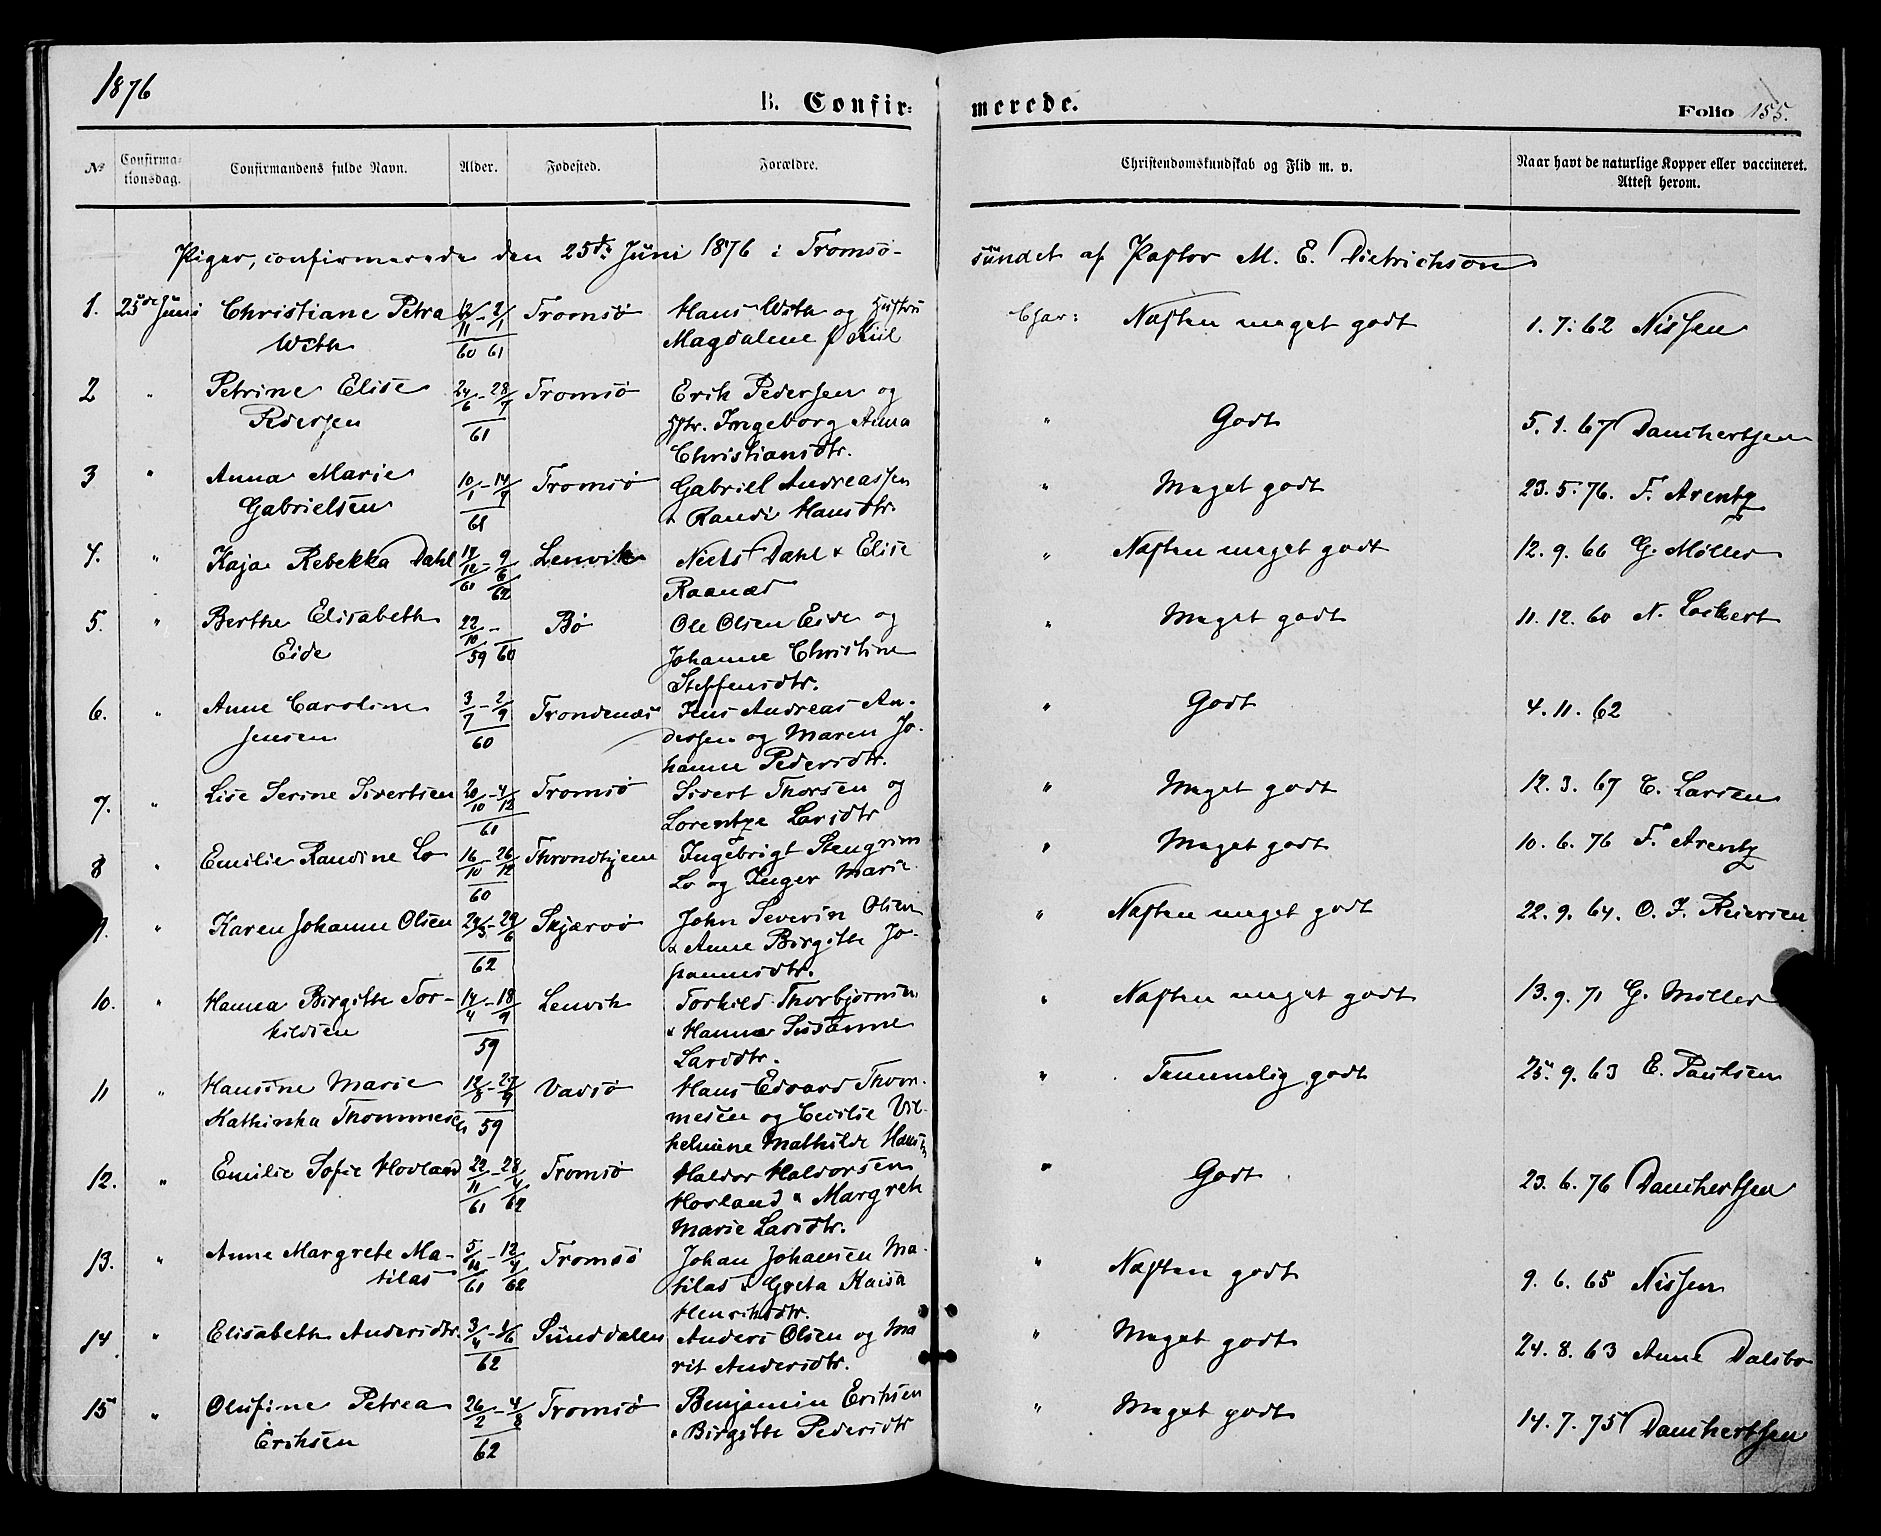 1876
B. Confir=
merede.
Folio 155.
No
Confirma-
tionsdag.
Confirmandens fulde Navn.
Alder.
Fødested.
Forældre.
Christendomskundskab og Flid m. v.
Naar havt de naturlige Kopper eller vaccineret.
Attest herom.
Piger, confirmerede den 25de Juni 1876 i Tromsö-
sundet af Pastor M. E. Dietrichson
1. 25de Juni Christiane Petra 12/11 - 2/1 Tromsö Hans With og Hustru Char: Næsten meget godt 1. 7. 62 Nissen
With 60 61 Magdalene
2 " Petrine Elise 24/6 - 28/7 Tromsö Erik Pedersen og
Pedersen 61 Hstr. Ingeborg Anna " Godt 5. 1. 67 Danchertsen
Christiansdtr.
3 " Anna Marie 10/1 - 14/9 Tromsö Gabriel Andreassen " Meget godt 23. 5. 76. F. Arentz
Gabrielsen 61 & Randi Hansdtr.
4. " Kaja Rebekka Dahl 9/6 Lenvik Niels Dahl & Elise " Næsten meget godt 12. 9. 66 G. Möller
61 62 Raanæs
5. " Berthe Elisabeth 22/10 - Bö Ole Olsen Eide og " Meget godt 11. 12. 60 N. Lockert
Eide 59 60 Johanne Christine
Steffensdtr.
6. " Anne Caroline 3/7 - 2/9 Trondenæs Jens Andreas An- " Godt 4. 11. 62
Jensen 60 dersen og Maren Jo-
hanne Pedersdtr.
7. " Lise Serine Sivertsen 20/10 - 4/12 Tromsö Sivert Thorsen og " Meget godt 12. 3. 67 C. Larsen
61 Lorentze Larsdtr
8 " Emilie Randine Lo 16/10 - 26/12 Throndhjem Ingebrigt Stengrim " Meget godt 10. 6. 76 F. Arentz
60 Lo og Inger Marie
9. " Karen Johanne Olsen 24/5 - 29/6 Skjærvö John Severin Olsen " Næsten meget godt 22. 9. 64. O. J. Reiersen
62 & Anne Birgitte Jo-
hannesdtr.
10. " Hanna Birgitte Tor- 14/4 - 18/9 Lenvik Torkild Thorbjörnsen " Næsten meget godt 13. 9. 71 G. Möller
kildsen 59 & Hanna Susanne
Larsdtr.
11 " Hansine Marie 12/8 - 27/9 Vadsö Hans Edvard Thom- " Temmelig godt 25. 9. 63 E. Paulsen
Kathinka Thommesen 59 mesen og Cecilie Vil-
helmine Mathilde Hansen
12. " Emilie Sofie Hovland 22/11 - 28/4 Tromsö Haldor Haldorsen " Godt 23. 6. 76 Danchertsen
61 62 Hovland & Margreth
Marie Larsdtr.
13. " Anne Margrete Ma- 12/4 Tromsö Johan Johansen Ma- " Næsten godt 9. 6. 65 Nissen
tilas 61 62 tilas & Greta Kaisa
Henriksdtr.
14 " Elisabeth Andersdtr. 3/4 - 4/6 Sunddalen Anders Olsen og Ma " Meget godt 24. 8. 63 Anne Dalsbo
62 rit Andersdtr.
15 " Olufine Petrea 26/2 - 4/8 Tromsö Benjamin Eriksen " Meget godt 14. 7. 75 Danchertsen
Eriksen 62 & Birgitte Pedersdtr